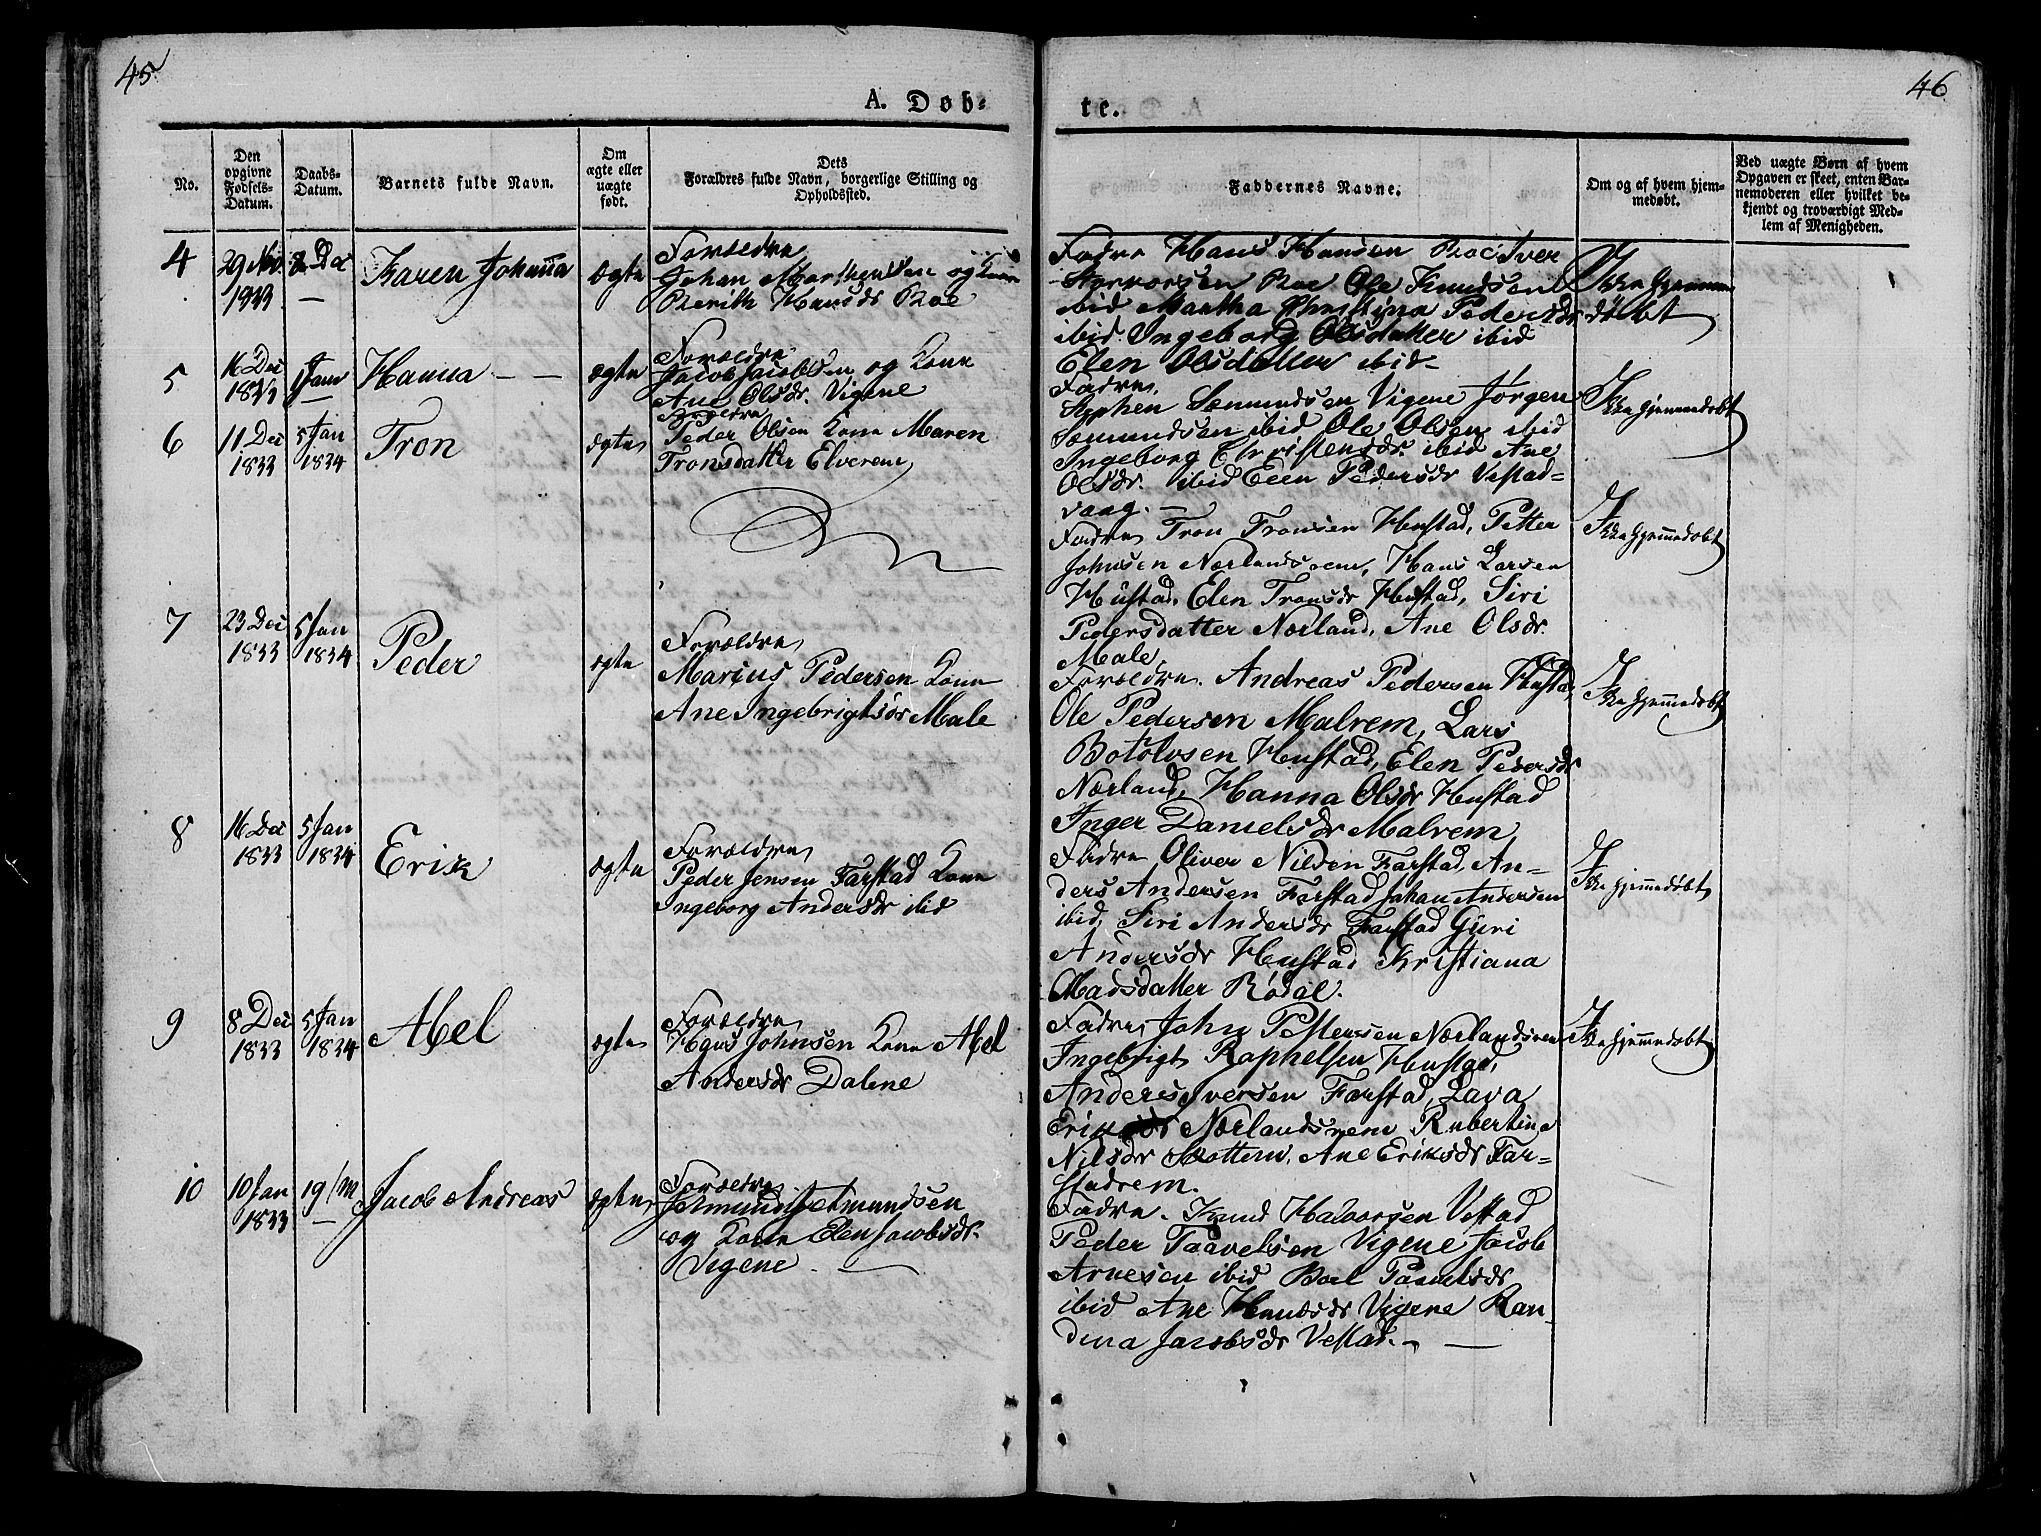 45
46
A. Døb-
te.
No.
Den opgivne Fødsels-Datum.
Daabs-Datum.
Barnets fulde Navn.
Om ægte eller uægte født.
Dets Forældres fulde Navn, borgerlige Stilling og Opholdssted.
Faddernes Navne.
Om og af hvem hjem-medøbt.
Ved uægte Børn af hvem Opgaven er skeet, enten Bar-nemoderen eller hvilket be-kjendt og troværdigt Med-lem af Menigheden.
4
29 Nov
1933
Dec
Karen Johanna
ægte
Forældre
Johan og Kone
Berith Hansdr Roe
Fadre Hans Hansen Roe Iver
Roe Ole Knudsen
ibid Martha Christina Pedersdr
ibid Ingeborg Olsdatter ibid
Elen Olsdatter ibid
Ikke hjemme
døbt
5
16 Dec
1833
1 Jan
Hanna
ægte
Forældre
Jacob Jacobsen og Kone
Ane Olsdr. Vigene
Fadre
Stephen Sæmundsen Vigene Jørgen
Sæmundsen ibid Ole Olsen ibid
Ingeborg Christensdr. ibid Ane
Olsdr. ibid Elen Pedersdr Vestad-
vaag.
Ikke hjemmedøbt
6
11 Dec
1833
5 Jan
1834
Tron
ægte
Forældre
Peder Olsen Kone Maren
Tronsdatter Elverem
Fadre Tron Tronsen Hustad, Petter
Johnsen Nærlandsrem, Hans Larsen
Hustad, Elen Tronsdr Hustad, Siri
Pedersdatter Nærland, Ane Olsdr.
Male
Ikke hjemmedøbt
7
23 Dec
1833
5 Jan
1834
Peder
ægte
Forældre
Marius Pedersen Kone
Ane Ingebrigtsdr Male
Forældre. Andreas Pedersen Hustad,
Ole Pedersen Malrem, Lars
Botolvsen Hustad, Elen Pedersdr
Nærland, Hanna Olsdr Hustad
Inger Danielsdr Malrem
Ikke hjemmedøbt
8
16 Dec
1833
5 Jan
1834
Erik
ægte
Forældre
Peder Jensen Farstad Kone
Ingeborg Andersdr ibid
Fadre Oliver Nilsen Farstad, An-
ders Andersen Farstad Johan Andersen
ibid, Siri Andersdr Farstad Guri
Andersdr Hustad Kristiana
Madsdatter Rødal.
Ikke hjemmedøbt
9
8 Dec
1833
5 Jan
1834
Abel
ægte
Forældre
Hans Johnsen Kone Abel
Andersdr Dalene
Fadre, John Pettersen Nærlandsrem
Ingebrigt Raphelsen Hustad,
Anders Iversen Farstad, Lava
Eriksdr Nærlandsrem Rubertina
Nilsdr Skottem, Ane Eriksdr Far-
stadrem.
Ikke hjemmedøbt
10
10 Jan
1833
19
Jacob Andreas
ægte
Forældre
og Kone Elen Jacobsdr.
Vigene
Fadre. Knud Halvorsen Vestad
Peder Taavelsen Vigene Jacob
Arnesen ibid
ibid Ane Hansdr Vigene Ran-
dena Jacobsdr Vestad.